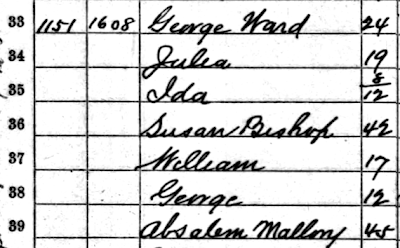 33 1151 1608 George Ward 24
34 Julia 19
35 Ida 8/12
36 Susan Bishop 42
37 William 17
38 George 12
39 Absalem Mallory 45